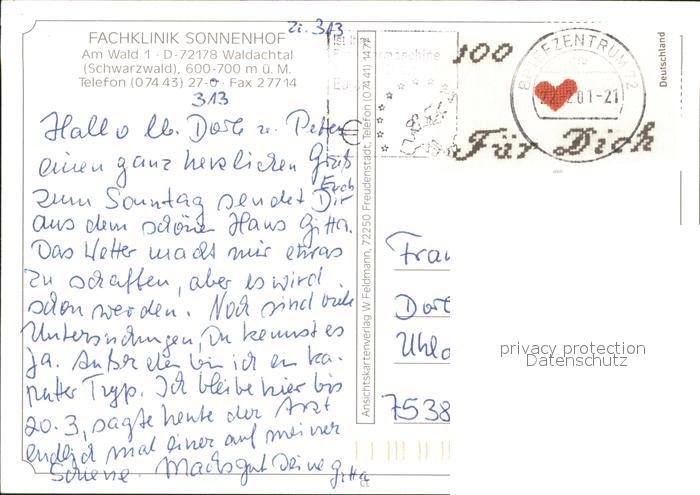 Zi. 313
FACHKLINIK SONNENHOF
Am Wald 1 · D-72178 Waldachtal
(Schwarzwald), 600-700 m ü. M.
Telefon (0 74 43) 27-0 · Fax 2 77 14
313
Hallo lb. Dorle u. Peter
einen ganz herzlichen Gruß
zum Sonntag sendet Dir Euch
aus dem schönen Haus Gitta.
Das Wetter macht mir etwas
zu schaffen, aber es wird
schon werden. Noch sind viele
Untersuchungen, Du kennst es
ja. Außer dem bin ich ein ka-
putter Typ. Ich bleibe hier bis
20. 3, sagte heute der Arzt
endlich mal einer auf meiner
Schiene. Machs gut Deine Gitta
Ansichtskartenverlag W. Feldmann, 72250 Freudenstadt, Telefon (0 74 41) 14 77
100
Für Dich
Deutschland
BRIEFZENTRUM 72
22.2.01-21
Frau
Dorle
7538
privacy protection
Datenschutz